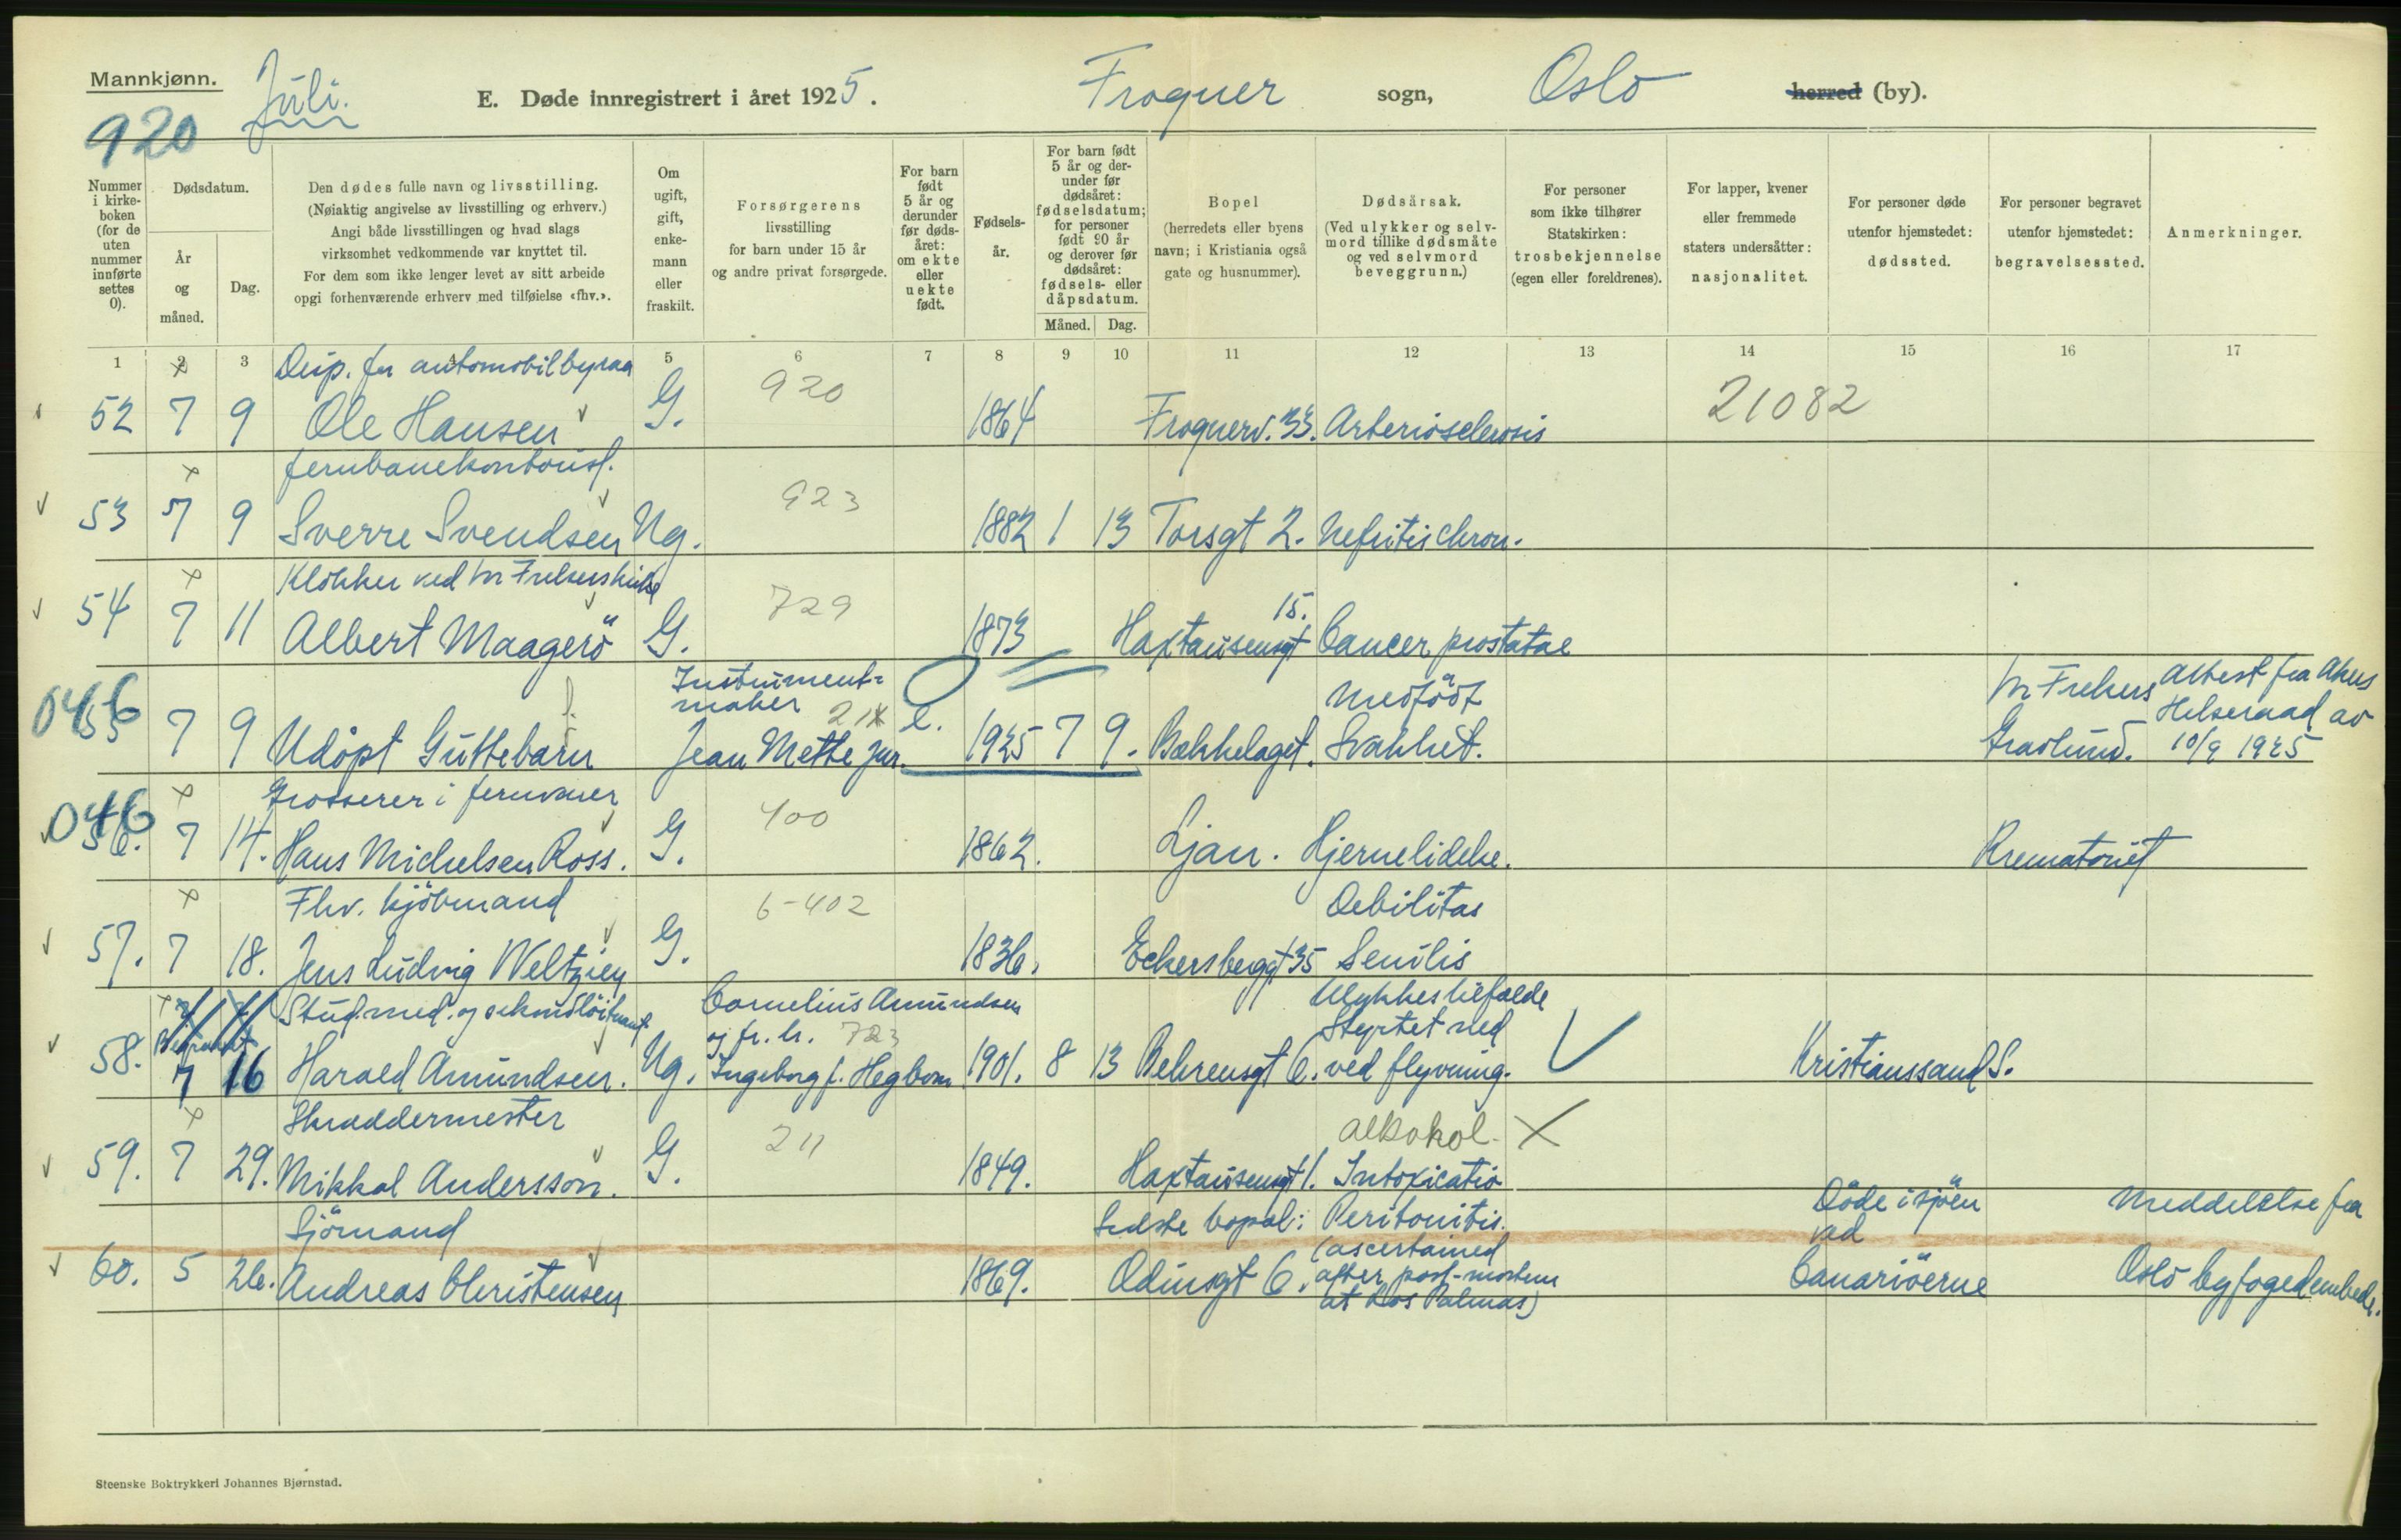 Mannkjønn.
Juli.
920
E. Døde innregistrert i året 1925.
Frogner sogn, Oslo herred (by).
Nummer i kirke-boken (for de uten nummer innførte settes 0).
Dødsdatum.
År og måned.
Dag.
Den dødes fulle navn og livsstilling.
(Nøiaktig angivelse av livsstilling og erhverv.)
Angi både livsstillingen og hvad slags
virksomhet vedkommende var knyttet til.
For dem som ikke lenger levet av sitt arbeide
opgi forhenværende erhverv med tilføielse «fhv.».
Om ugift, gift, enke-mann eller fraskilt.
Forsørgerens
livsstilling
for barn under 15 år
og andre privat forsørgede.
For barn født 5 år og derunder før døds-året: om ekte eller uekte født.
Fødsels-år.
For barn født 5 år og der-under før dødsåret: fødselsdatum; for personer født 90 år og derover før dødsåret: fødsels- eller dåpsdatum.
Måned. Dag.
Bopel
(herredets eller byens
navn; i Kristiania også
gate og husnummer).
Dødsårsak.
(Ved ulykker og selv-
mord tillike dødsmåte
og ved selvmord
beveggrunn.)
For personer
som ikke tilhører
Statskirken:
trosbekjennelse
(egen eller foreldrenes).
For lapper, kvener
eller fremmede
staters undersåtter:
nasjonalitet.
For personer døde
utenfor hjemstedet:
dødssted.
For personer begravet
utenfor hjemstedet:
begravelsessted.
Anmerkninger.
1 2 3 4 5 6 7 8 9 10 11 12 13 14 15 16 17
Disp. for automobilbyraa
52 7 9 Ole Hansen G. 920 1864 Frognerv. 33. Arteriosclerosis 21082
Jernbanekontorist.
53 7 9 Sverre Svendsen Ug. 923 1882 1 13 Torsgt 2. Nefritis chron.
Klokker ved Vor Frelsers kirke
54 7 11 Albert Maagerö G. 729 1873 Haxtausensgt 15. Cancer prostatae
Instrument-
maker 21
046
55 7 9 Udöpt Guttebarn Jean Mette jur. e. 1925 7 9. Bækkelaget. Medfödt Svakhet.
Vor Frelsers Gravlund.
Attest fra Akers
Helseraad av
10/9 1925
Grosserer i jernvarer
046
56. 7 14. Hans Michelsen Ross. G. 400 1862. Ljan. Hjernelidelse. Krematoriet
Fhv. kjöbmand
57. 7 18. Jens Ludvig Weltzien G. 6-402 1836. Eckersbergsgt 35 Debilitas Senilis
Stud. med. og sekondlöitnant
Cornelius Amundsen
og fr. h. 723
Ulykkestilfælde
Styrtet ned
58. 7 16 Harald Amundsen. Ug. Ingeborg f. Hegbom 1901. 8 13 Behrensgt 6. ved flyvning. Kristianssand S.
Skræddermester
alkohol-
59. 7 29. Mikkal Andersson. G. 211 1849. Haxtausensgt 1. Intoxicatio
Sjömand
Sidste bopæl: Peritonitis.
60. 5 26. Andreas Christensen 1869. Odinsgt 6.
(ascertained
after post-mortem
at Las Palmas)
Döde i sjöen
ved
Canariöerne
Meddelelse fra
Oslo byfogedembede.
Steenske Boktrykkeri Johannes Bjørnstad.